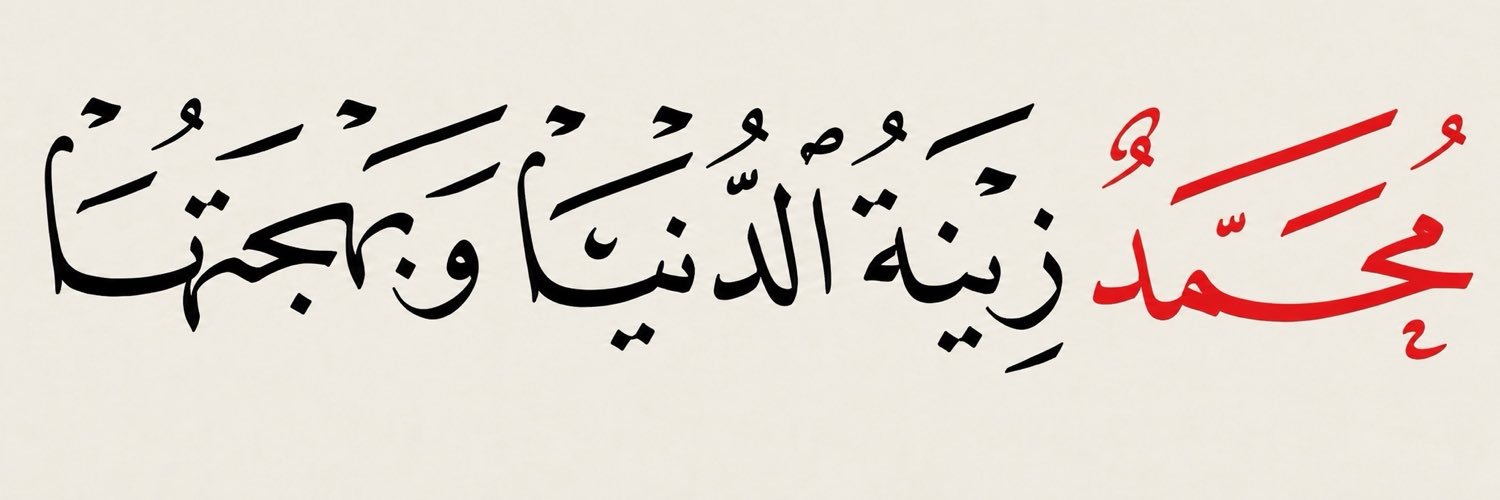 مُحَمَّدٌ زِيْنَةُ ٱلدُّنْيَا وَبَهْجَتُهَا